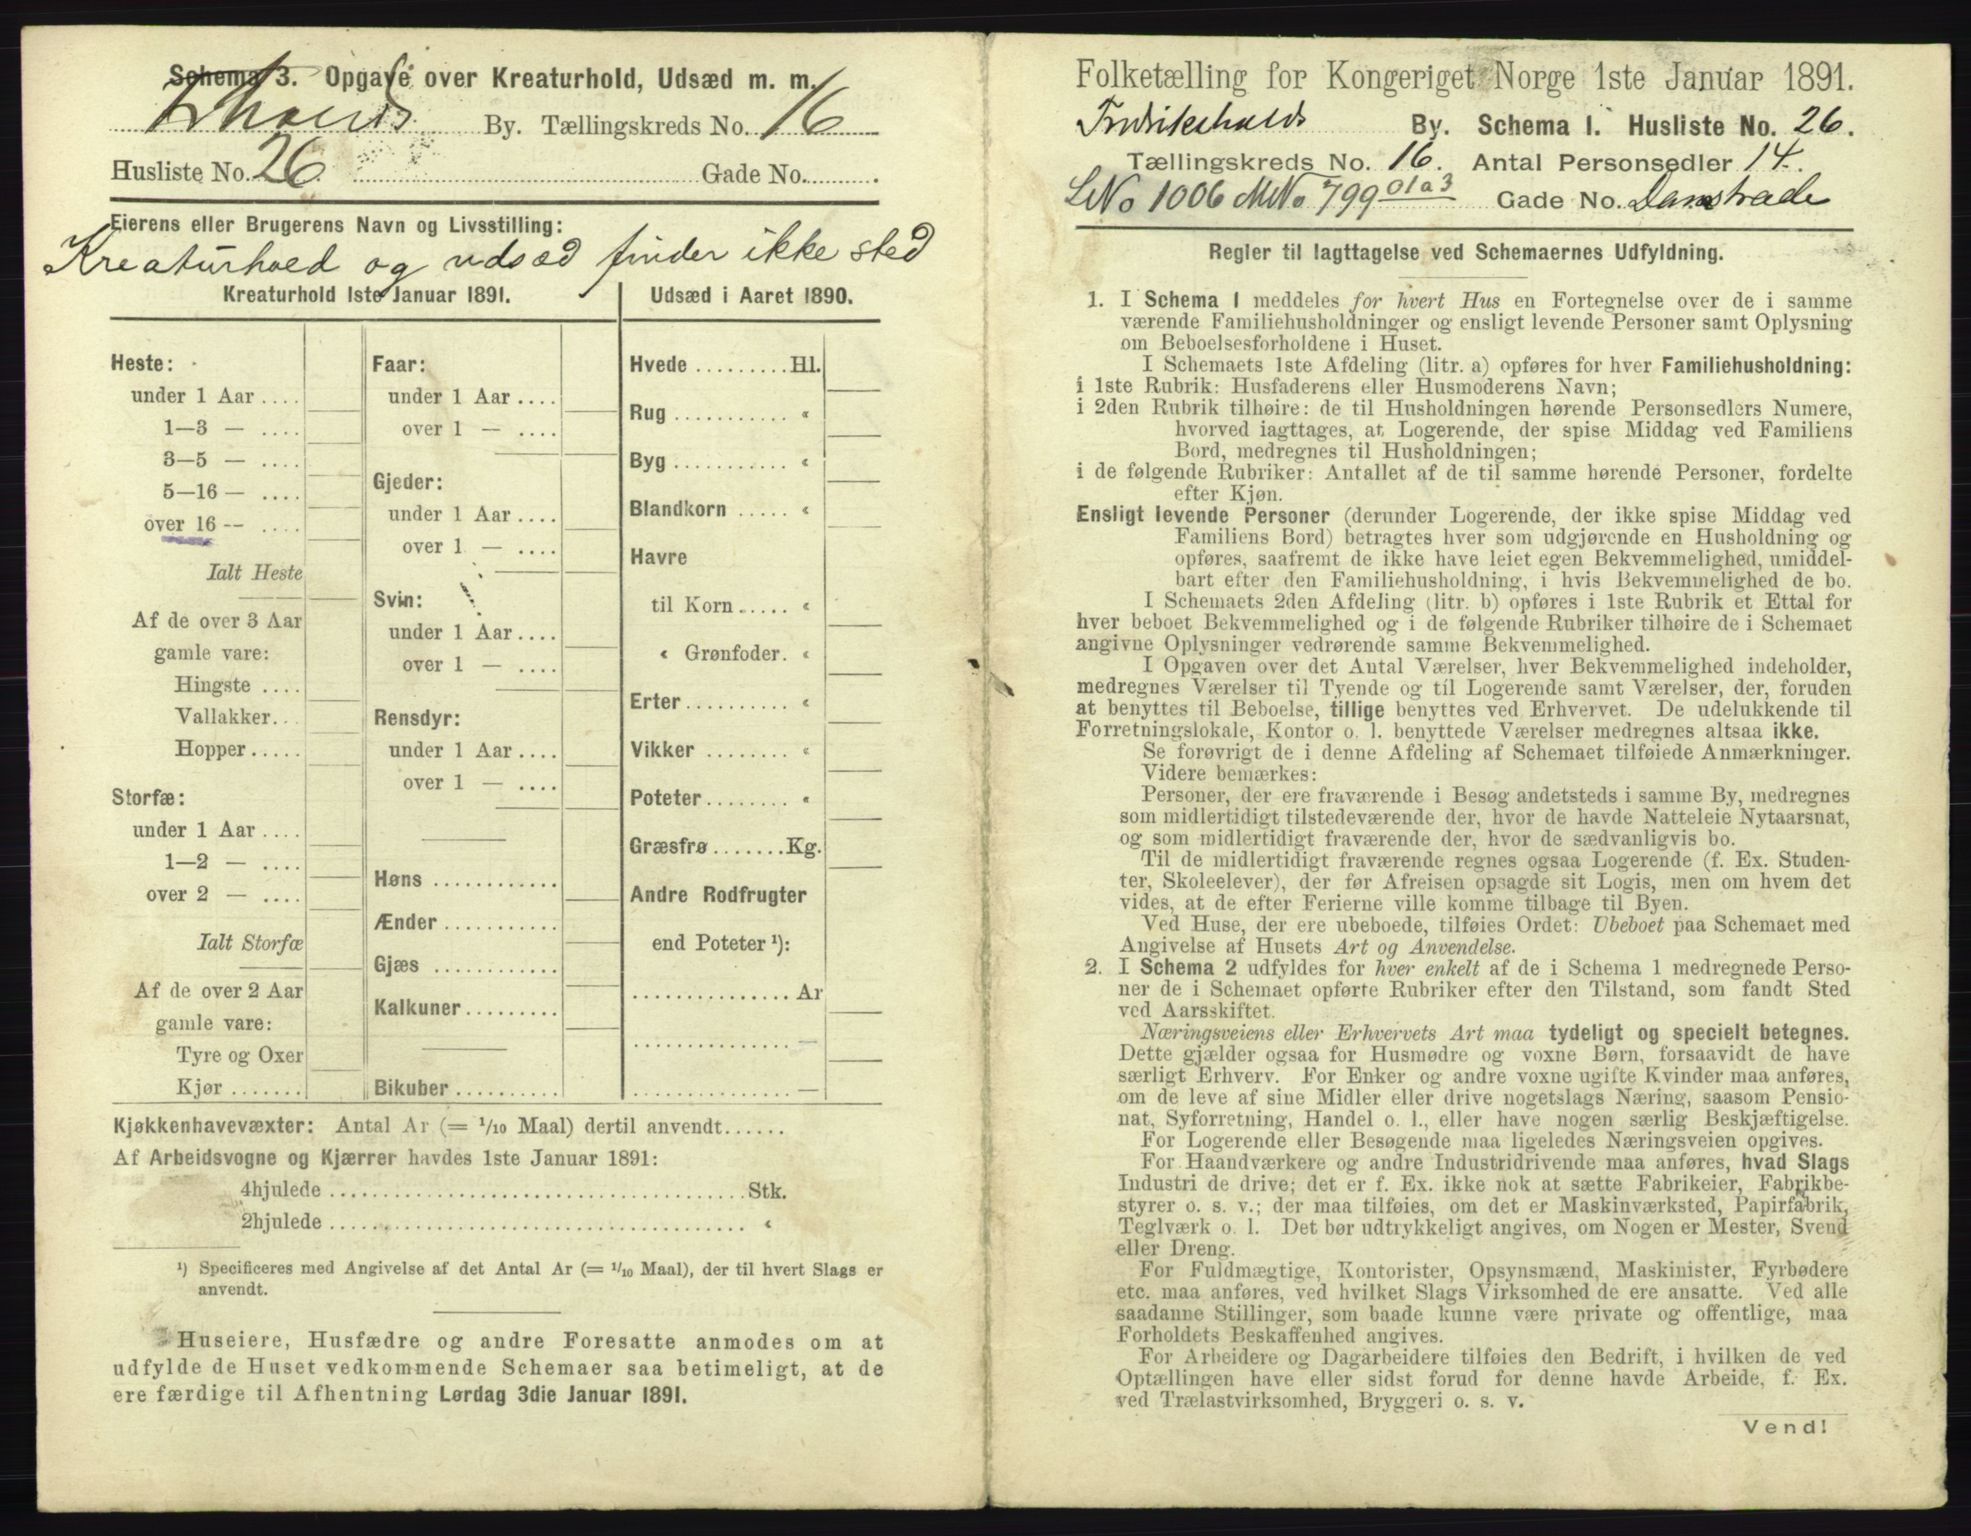 Schema 3. Opgave over Kreaturhold, Udsæd m. m.
By. Tællingskreds No. 16
Husliste No. 26 Gade No.
Eierens eller Brugerens Navn og Livsstilling:
Kreaturhold og udsæd finder ikke sted
Kreaturhold 1ste Januar 1891.
Heste:
under 1 Aar ....
1—3 — ....
3—5 — ....
5—16 — ....
over 16 -- ....
Ialt Heste
Af de over 3 Aar
gamle vare:
Hingste ....
Vallakker...
Hopper.....
Storfæ:
under 1 Aar ....
1—2 — ....
over 2 — ....
Ialt Storfæ
Af de over 2 Aar
gamle vare:
Tyre og Oxer
Kjør .......
Faar:
under 1 Aar ....
over 1 — ....
Gjeder:
under 1 Aar ....
over 1 — ....
Svin:
under 1 Aar ....
over 1 — ....
Rensdyr:
under 1 Aar ....
over 1 — ....
Høns ............
Ænder ...........
Gjæs ............
Kalkuner.........
Bikuber ..........
Udsæd i Aaret 1890.
Hvede .........Hl.
Rug ........... «
Byg ........... «
Blandkorn ..... «
Havre
til Korn ..... «
« Grønfoder. «
Erter .......... «
Vikker ......... «
Poteter........ «
Græsfrø .......Kg.
Andre Rodfrugter
end Poteter ¹):
............... Ar
............... —
............... —
Kjøkkenhavevæxter: Antal Ar (= 1/10 Maal) dertil anvendt......
Af Arbeidsvogne og Kjærrer havdes 1ste Januar 1891:
4hjulede ....................................... Stk.
2hjulede ....................................... «
¹) Specificeres med Angivelse af det Antal Ar (= 1/10 Maal), der til hvert Slags er
anvendt.
Huseiere, Husfædre og andre Foresatte anmodes om at
udfylde de Huset vedkommende Schemaer saa betimeligt, at de
ere færdige til Afhentning Lørdag 3die Januar 1891.
Folketælling for Kongeriget Norge 1ste Januar 1891.
Fredrikshalds By. Schema I. Husliste No. 26.
Tællingskreds No. 16. Antal Personsedler 14.
LNo 1006 MNo 799 01 a 3 Gade No. Damstrade
Regler til Iagttagelse ved Schemaernes Udfyldning.
1. I Schema 1 meddeles for hvert Hus en Fortegnelse over de i samme
værende Familiehusholdninger og ensligt levende Personer samt Oplysning
om Beboelsesforholdene i Huset.
I Schemaets 1ste Afdeling (litr. a) opføres for hver Familiehusholdning:
i 1ste Rubrik: Husfaderens eller Husmoderens Navn;
i 2den Rubrik tilhøire: de til Husholdningen hørende Personsedlers Numere,
hvorved iagttages, at Logerende, der spise Middag ved Familiens
Bord, medregnes til Husholdningen;
i de følgende Rubriker: Antallet af de til samme hørende Personer, fordelte
efter Kjøn.
Ensligt levende Personer (derunder Logerende, der ikke spise Middag ved
Familiens Bord) betragtes hver som udgjørende en Husholdning og
opføres, saafremt de ikke have leiet egen Bekvemmelighed, umiddel-
bart efter den Familiehusholdning, i hvis Bekvemmelighed de bo.
I Schemaets 2den Afdeling (litr. b) opføres i 1ste Rubrik et Ettal for
hver beboet Bekvemmelighed og i de følgende Rubriker tilhøire de i Schemaet
angivne Oplysninger vedrørende samme Bekvemmelighed.
I Opgaven over det Antal Værelser, hver Bekvemmelighed indeholder,
medregnes Værelser til Tyende og til Logerende samt Værelser, der, foruden
at benyttes til Beboelse, tillige benyttes ved Erhvervet. De udelukkende til
Forretningslokale, Kontor o. l. benyttede Værelser medregnes altsaa ikke.
Se forøvrigt de i denne Afdeling af Schemaet tilføiede Anmærkninger.
Videre bemærkes:
Personer, der ere fraværende i Besøg andetsteds i samme By, medregnes
som midlertidigt tilstedeværende der, hvor de havde Natteleie Nytaarsnat,
og som midlertidigt fraværende der, hvor de sædvanligvis bo.
Til de midlertidigt fraværende regnes ogsaa Logerende (f. Ex. Studen-
ter, Skoleelever), der før Afreisen opsagde sit Logis, men om hvem det
vides, at de efter Ferierne ville komme tilbage til Byen.
Ved Huse, der ere ubeboede, tilføies Ordet: Ubeboet paa Schemaet med
Angivelse af Husets Art og Anvendelse.
2. I Schema 2 udfyldes for hver enkelt af de i Schema 1 medregnede Perso-
ner de i Schemaet opførte Rubriker efter den Tilstand, som fandt Sted
ved Aarsskiftet.
Næringsveiens eller Erhvervets Art maa tydeligt og specielt betegnes.
Dette gjælder ogsaa for Husmødre og voxne Børn, forsaavidt de have
særligt Erhverv. For Enker og andre voxne ugifte Kvinder maa anføres,
om de leve af sine Midler eller drive nogetslags Næring, saasom Pensio-
nat, Syforretning, Handel o. l., eller have nogen særlig Beskjæftigelse.
For Logerende eller Besøgende maa ligeledes Næringsveien opgives.
For Haandværkere og andre Industridrivende maa anføres, hvad Slags
Industri de drive; det er f. Ex. ikke nok at sætte Fabrikeier, Fabrikbe-
styrer o. s. v.; der maa tilføies, om det er Maskinværksted, Papirfabrik,
Teglværk o. l. Det bør udtrykkeligt angives, om Nogen er Mester, Svend
eller Dreng.
For Fuldmægtige, Kontorister, Opsynsmænd, Maskinister, Fyrbødere
etc. maa anføres, ved hvilket Slags Virksomhed de ere ansatte. Ved alle
saadanne Stillinger, som baade kunne være private og offentlige, maa
Forholdets Beskaffenhed angives.
For Arbeidere og Dagarbeidere tilføies den Bedrift, i hvilken de ved
Optællingen have eller sidst forud for denne havde Arbeide, f. Ex.
ved Trælastvirksomhed, Bryggeri o. s. v.
Vend!